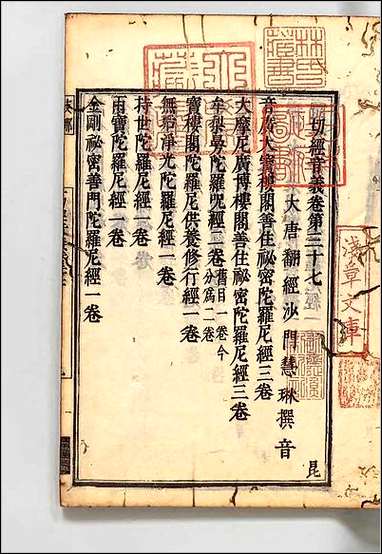 一切經音義卷第三十七
大唐翻經沙門慧琳撰音
音廣大寶樓閣善住祕密陀羅尼經三卷
大摩尼廣博樓閣善住祕密陀羅尼經三卷
牟梨曼陀羅呪經二卷舊目一卷今分為二卷
寶樓閣陀羅尼供養修行經一卷
無垢淨光陀羅尼經一卷
持世陀羅尼經一卷
雨寶陀羅尼經一卷
金剛祕密善門陀羅尼經一卷
昆
淺草文庫
林氏藏書